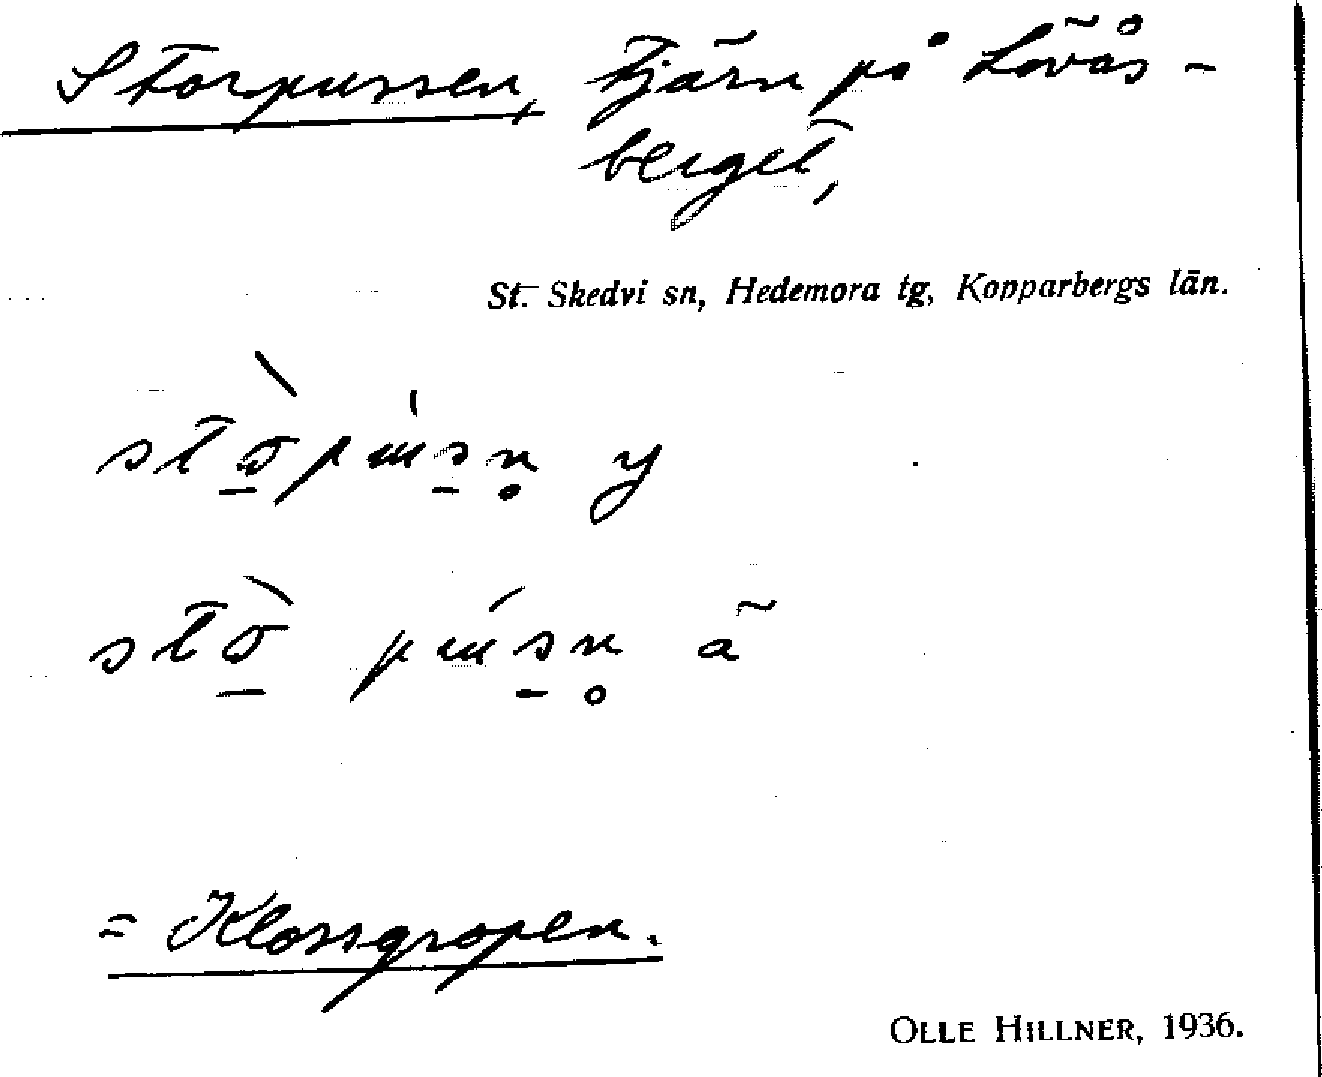 Storpussen, tjärn på Lövås-
berget,
St. Skedvi sn, Hedemora tg, Kopparbergs län.
= Klossgropen.
OLLE HILLNER, 1936.